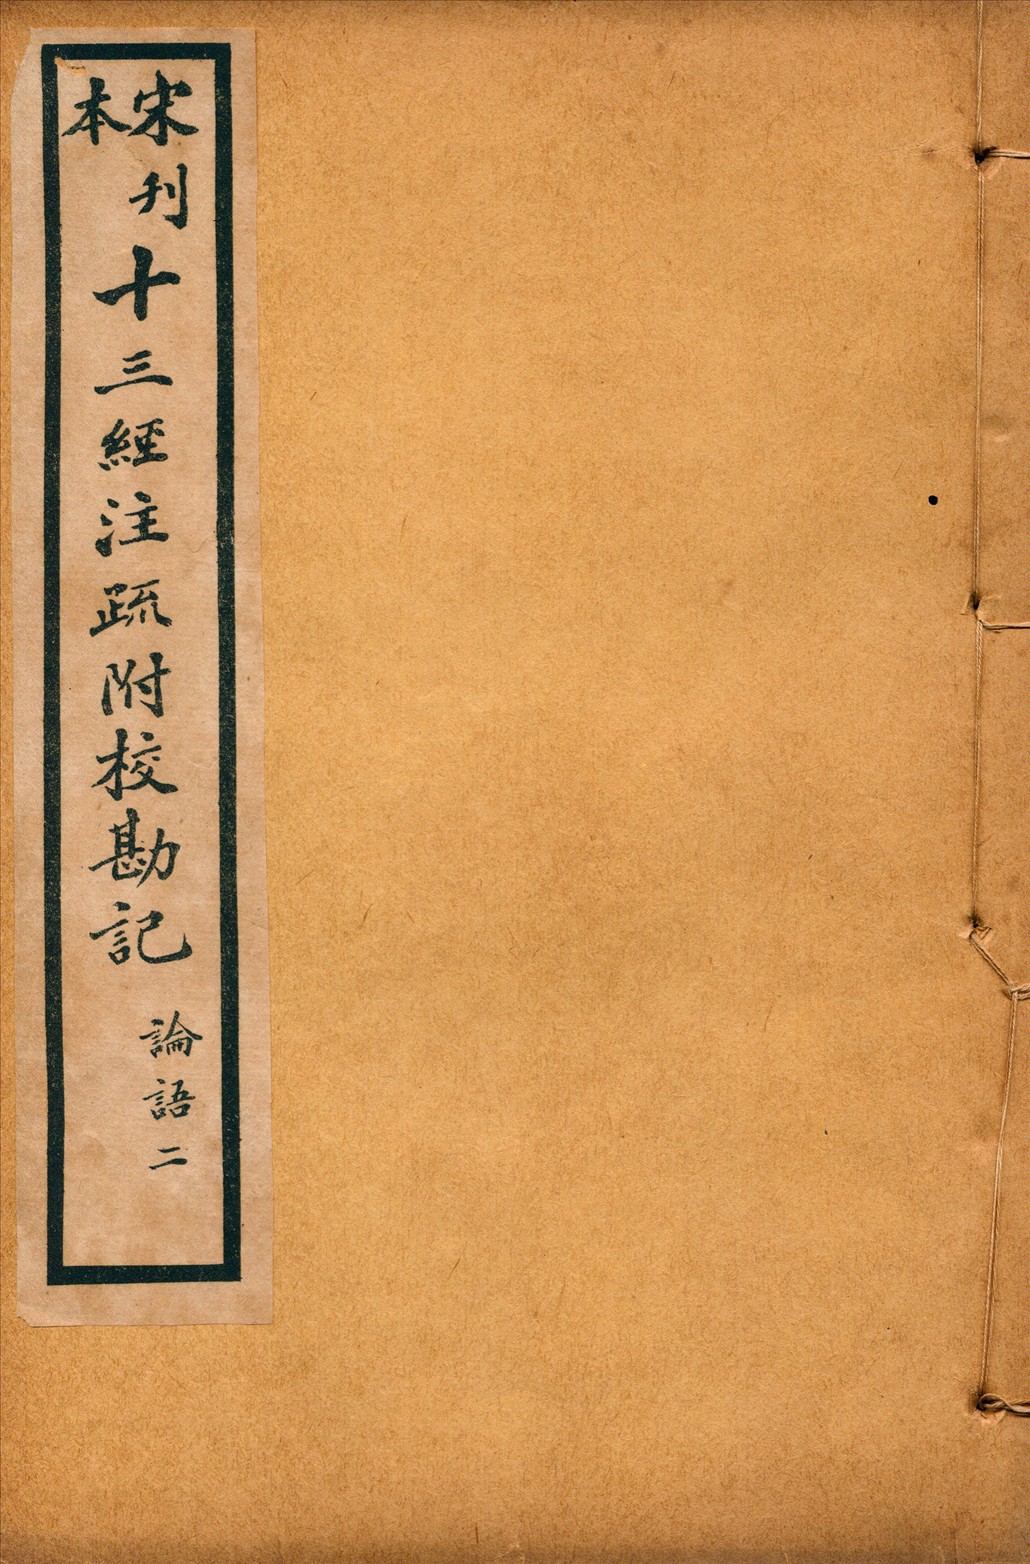 宋本
刊十三經注疏附校勘記
論語二